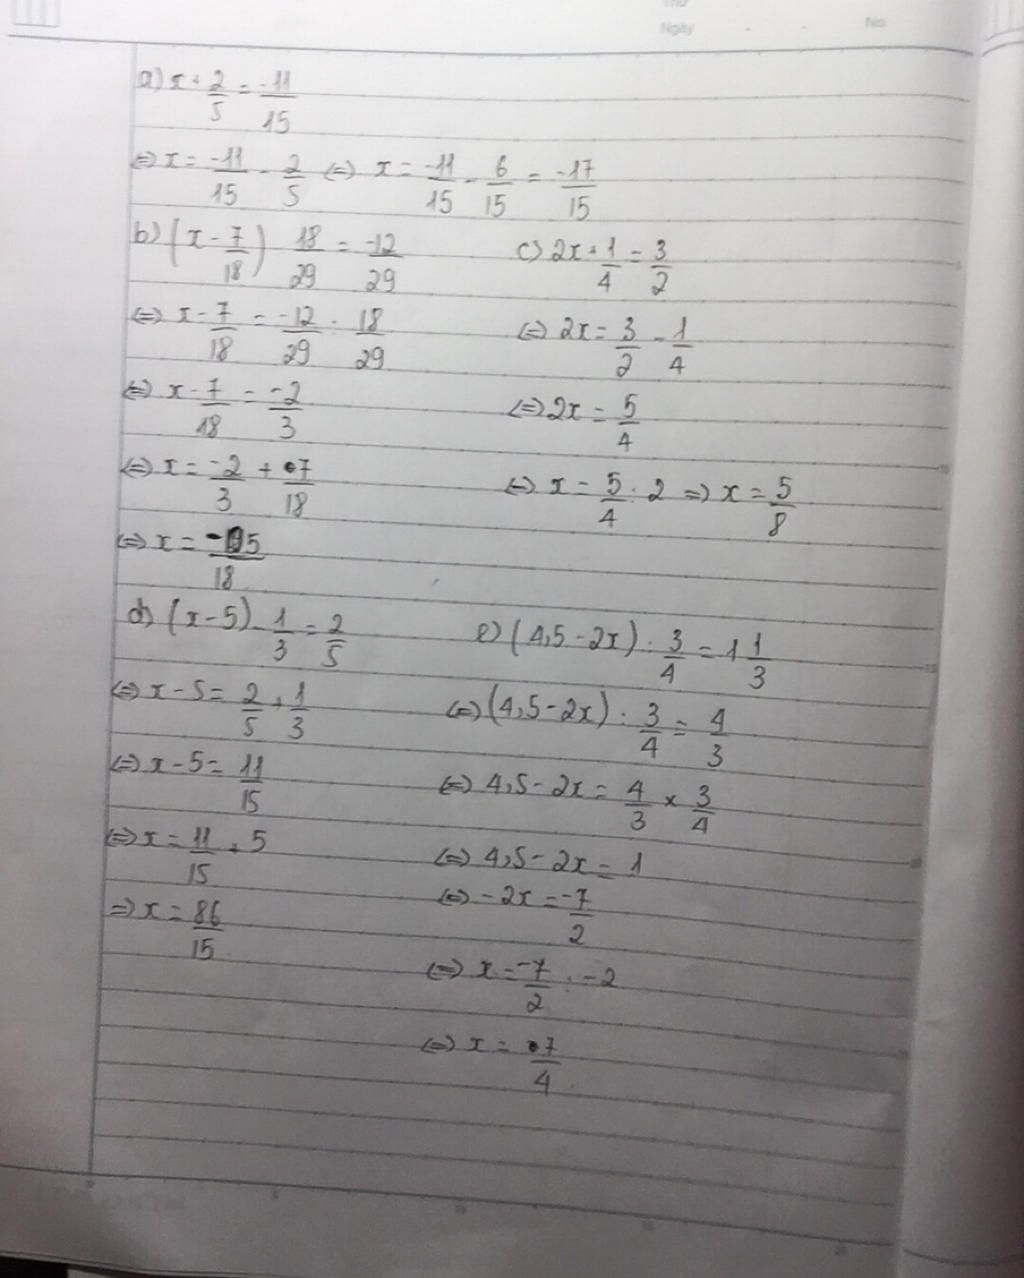 Thứ
Ngày No.
a) x + 2/5 = -11/15
⇔ x = -11/15 - 2/5 ⇔ x = -11/15 - 6/15 = -17/15
b) (x - 7/18) . 18/29 = -12/29
⇔ x - 7/18 = -12/29 : 18/29
⇔ x - 7/18 = -2/3
⇔ x = -2/3 + 7/18
⇔ x = -5/18
c) 2x + 1/4 = 3/2
⇔ 2x = 3/2 - 1/4
⇔ 2x = 5/4
⇔ x = 5/4 : 2 => x = 5/8
d) (x - 5) - 1/3 = 2/5
⇔ x - 5 = 2/5 + 1/3
⇔ x - 5 = 11/15
⇔ x = 11/15 + 5
=> x = 86/15
e) (4,5 - 2x) : 3/4 = 1 1/3
⇔ (4,5 - 2x) : 3/4 = 4/3
⇔ 4,5 - 2x = 4/3 × 3/4
⇔ 4,5 - 2x = 1
⇔ -2x = -7/2
⇔ x = -7/2 : -2
⇔ x = 7/4